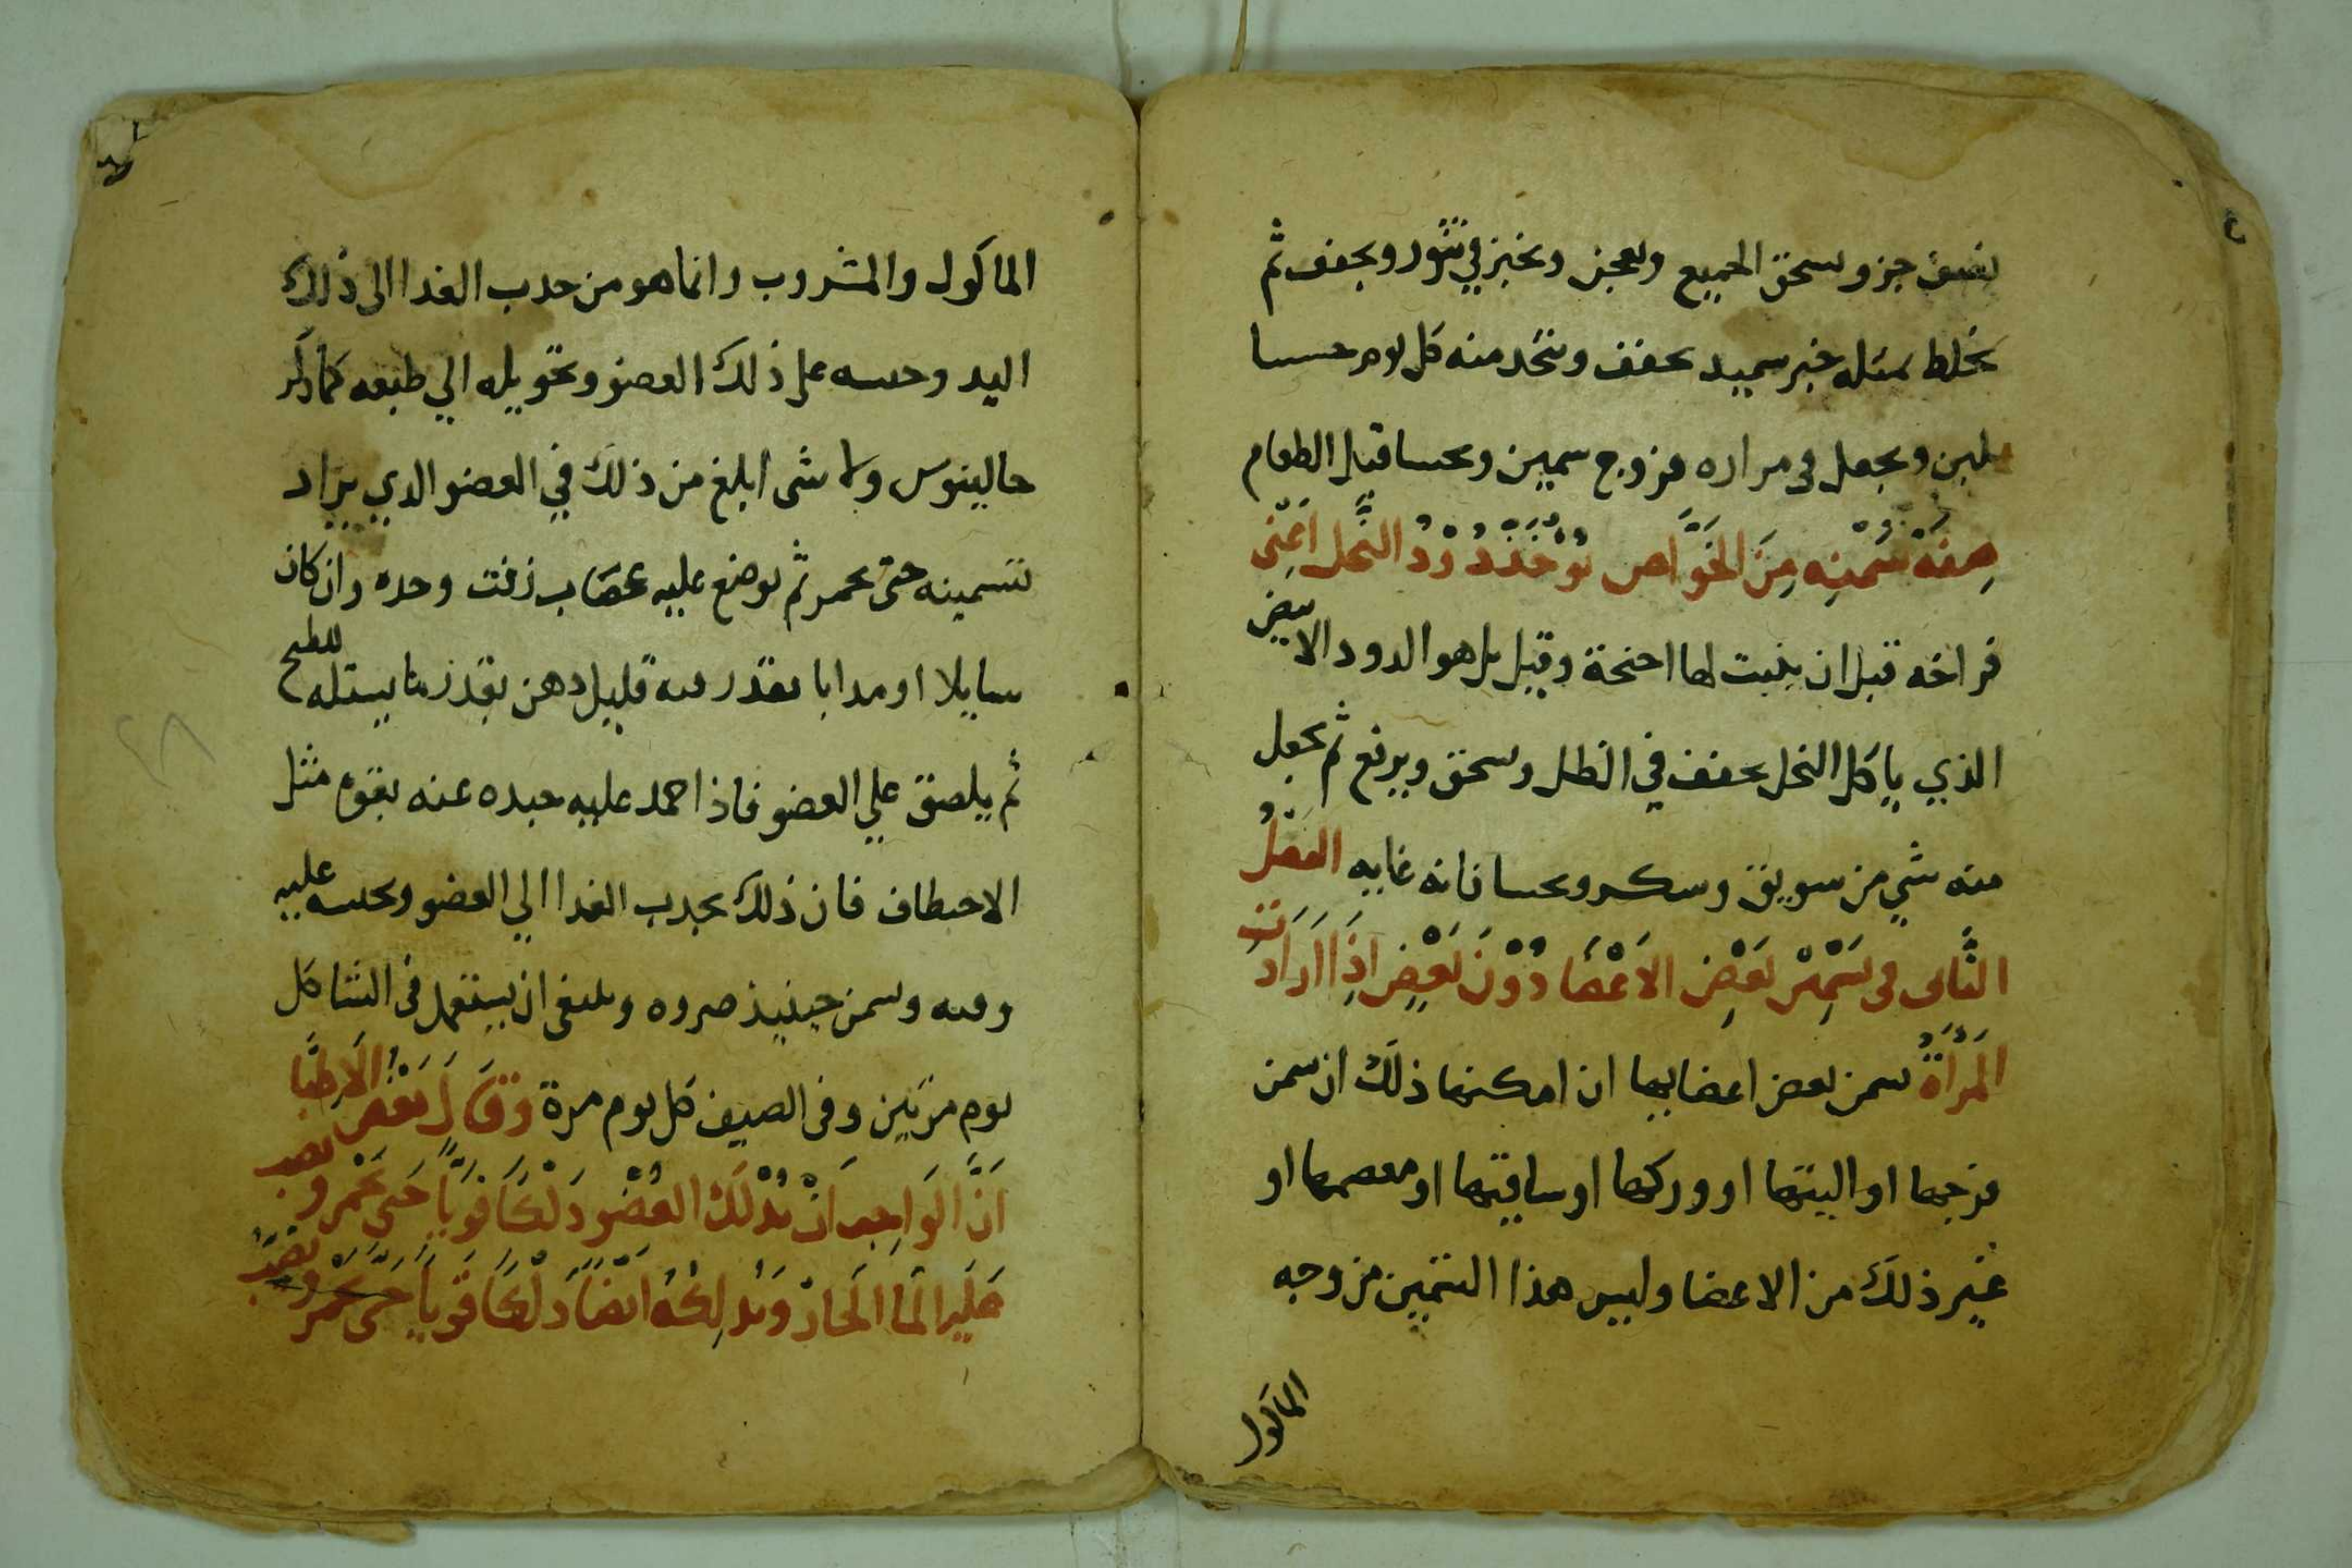 نصف جزو وسحق الجميع ويعجن ويخبز في تنور ويجفف ثم
يخلط بمثله خبز سميد مجفف ويتخد منه كل يوم حسا
بلبن ويجعل في مراره فروج سمين ويحسا قبل الطعام
صفة سمنه من الخواص يوخذ دود النحل اعني
فراخه قبل ان ينبت لها اجنحة وقيل بل هو الدود الابيض
الذي ياكل النحل يجفف في الظل ويسحق ويرفع ثم يجعل
منه شي من سويق وسكر ويحسا فانه غايه الفصل
الثاني في تسمين بعض الاعضا دون بعض اذا ارادت
المراة تسمن بعض اعضايها ان امكنها ذلك ان تسمن
فرجها او اليتها او وركها او ساقيها او معصمها او
غير ذلك من الاعضا وليس هذا التسمين من وجه
الماكول
الماكول والمشروب وانما هو من جدب الغدا الى ذلك
اليد وحبسه على ذلك العضو وتحويله الي طبعه كما ذكر
جالينوس ولا شى ابلغ من ذلك في العضو الدي يراد
تسمينه حتى يحمر ثم يوضع عليه عصاب زفت وحده وان كان
سايلا او مدابا بقدر فيه قليل دهن بقدر ما يسيله للطبخ
ثم يلصق علي العضو فاذا جمد عليه جبده عنه بقوة مثل
الاختطاف فان ذلك يجدب الغدا الي العضو ويحبسه عليه
وفيه ويسمن حينيذ ضروه وينبغى ان يستعمل فى الشتا كل
يوم مرتين وفى الصيف كل يوم مرة وقال بعض الاطبا
ان الواجب ان يدلك العضو دلكا قويا حتى يحمر ويصب
عليه الما الحار ويدلكه ايضا دلكا قويا حتى يحمر ويصب